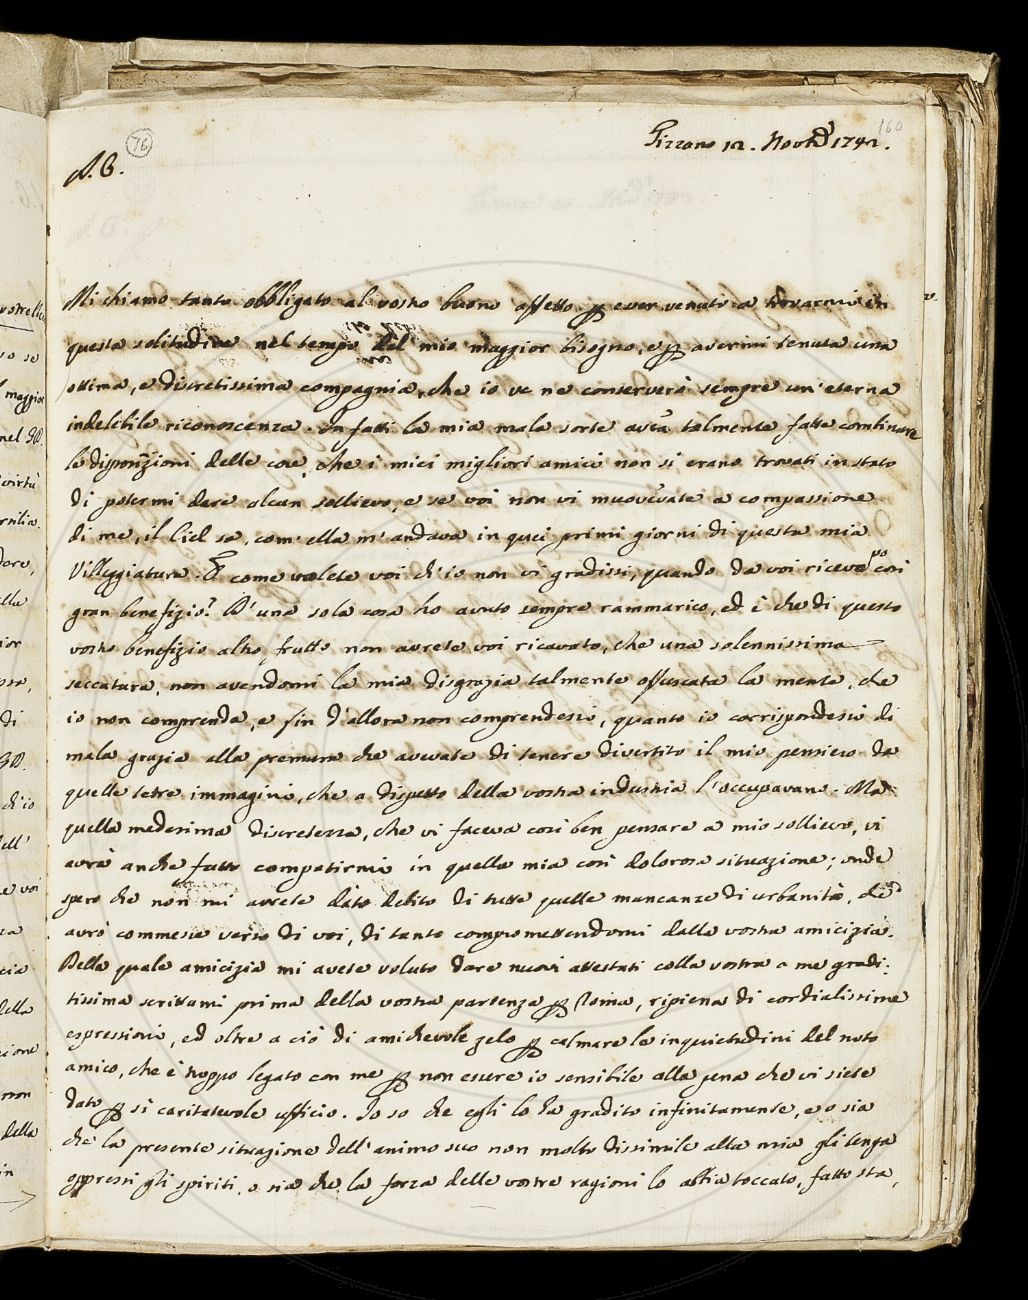 160
76
Pizzano 12. Novbre 1742.
A. C.
Mi chiamo tanto obbligato al vostro buono affetto per esser venuto a trovarmi in
questa solitudine nel tempo del mio maggior bisogno, e per avermi tenuta una
ottima, e discretissima compagnia, che io ve ne conserverò sempre un'eterna
indelebile riconoscenza. In fatti la mia mala sorte avea talmente fatte combinare
le disposizioni delle cose, che i miei migliori amici non si erano trovati in stato
di potermi dare alcun sollievo, e se voi non vi muovevate a compassione
di me, il Ciel sa, com'ella m'andava in quei primi giorni di questa mia
Villeggiatura. E come volete voi ch'io non vi gradissi, quando da voi ricevo un così
gran benefizio? D'una sola cosa ho avuto sempre rammarico, ed è che di questo
vostro benefizio altro frutto non avrete voi ricavato, che una solennissima
seccatura, non avendomi la mia disgrazia talmente offuscata la mente, che
io non comprenda, e fin d'allora non comprendessi, quanto io corrispondessi di
mala grazia alla premura che avevate di tenere divertito il mio pensiero da
quelle tetre immagini, che a dispetto della vostra industria l'occupavano. Ma
quella medesima discretezza, che vi faceva così ben pensare a mio sollievo, vi
avrà anche fatto compatirmi in quella mia così dolorosa situazione; onde
spero che non mi avrete dato debito di tutte quelle mancanze di urbanità, che
avrò commesse verso di voi, di tanto compromettendomi dalla vostra amicizia.
Della quale amicizia mi avete voluto dare nuovi attestati colla vostra a me gradi-
tissima scrittami prima della vostra partenza per Roma, ripiena di cordialissime
espressioni, ed oltre a ciò di amichevole zelo per calmare le inquietudini del noto
amico, che è troppo legato con me per non essere io sensibile alla pena che vi siete
dato per sì caritatevole uffizio. Io so che egli lo ha gradito infinitamente, e o sia
che la presente situazione dell'animo suo non molto dissimile alla mia gli tenga
oppressi gli spiriti, o sia che la forza delle vostre ragioni lo abbia toccato, fatto sta,